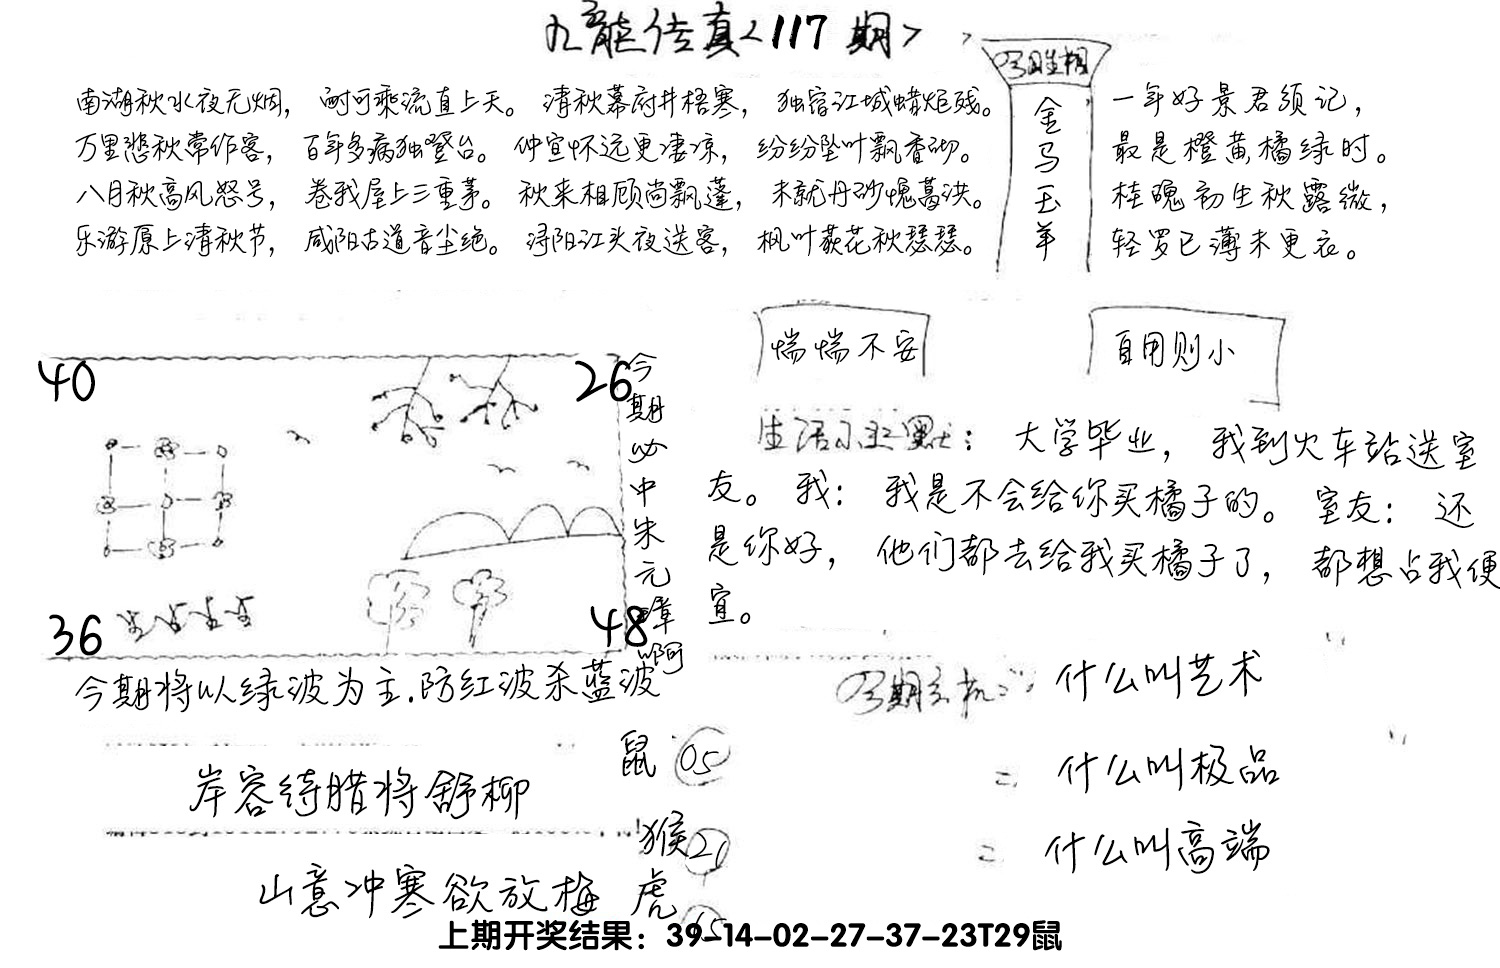 九龍传真<117期>
南湖秋水夜无烟，耐可乘流直上天。清秋幕府井梧寒，独宿江城蜡炬残。
万里悲秋常作客，百年多病独登台。仲宣怀远更凄凉，纷纷坠叶飘香砌。
八月秋高风怒号，卷我屋上三重茅。秋来相顾尚飘蓬，未就丹砂愧葛洪。
乐游原上清秋节，咸阳古道音尘绝。浔阳江头夜送客，枫叶荻花秋瑟瑟。
金马玉羊
一年好景君须记，
最是橙黄橘绿时。
桂魄初生秋露微，
轻罗已薄未更衣。
惴惴不安
自用则小
40
26
36
48
今期必中朱元璋啊
今期将以绿波为主.防红波杀蓝波
生活小幽默：大学毕业，我到火车站送室
友。我：我是不会给你买橘子的。室友：还
是你好，他们都去给我买橘子了，都想占我便
宜。
今期玄机：什么叫艺术
什么叫极品
什么叫高端
岸容待腊将舒柳
山意冲寒欲放梅
鼠 05
猴 21
虎 15
上期开奖结果：39-14-02-27-37-23T29鼠